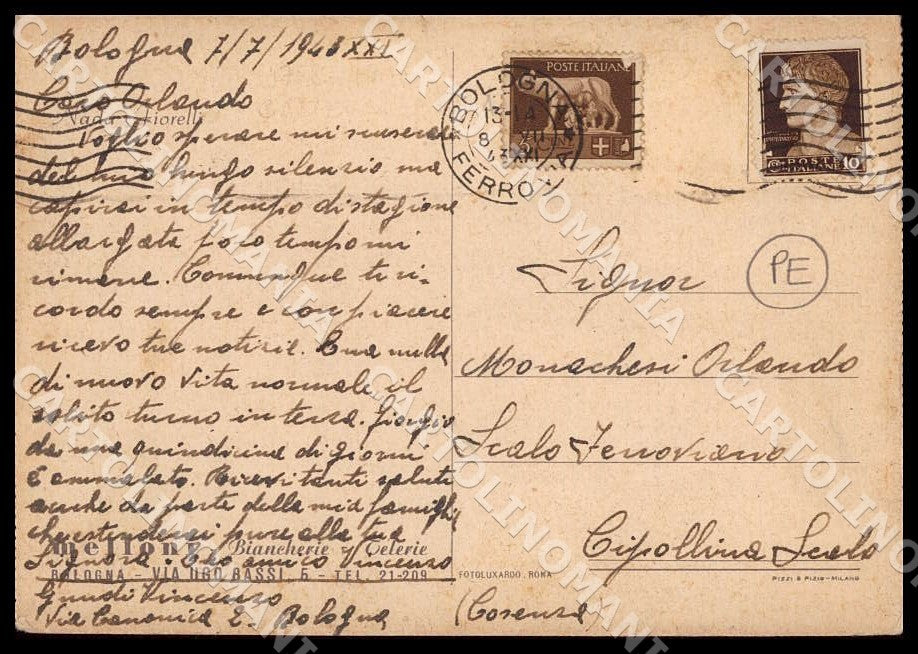 Bologna 7/7/1943 XXI
Caro Orlando
Nada Fiorelli
Voglio sperare mi scuserai
del mio lungo silenzio ma
capirai in tempo di stagione
allargata poco tempo mi
rimane. Comunque ti ri-
cordo sempre e con piacere
ricevo tue notizie. Qua nulla
di nuovo vita normale il
solito turno in terza. Giorgio
da una quindicina di giorni
è ammalato. Ricevi tanti saluti
anche da parte della mia famiglia
che estenderai pure alla tua
Signora. Tuo amico Vincenzo
melloni Biancherie - Telerie
BOLOGNA - VIA UGO BASSI, 5 - TEL. 21-209
Vincenzo
Via Canonica 2 - Bologna
POSTE ITALIANE
BOLOGNA
13-14
8 VII
43 XXI
FERROVIA
POSTE
ITALIANE
10
PE
Signor
Monachesi Orlando
Scalo Ferroviario
Cipollina Scalo
(Cosenza)
FOTOLUXARDO. ROMA
PIZZI & PIZIO - MILANO
CARTOLINOMANIA